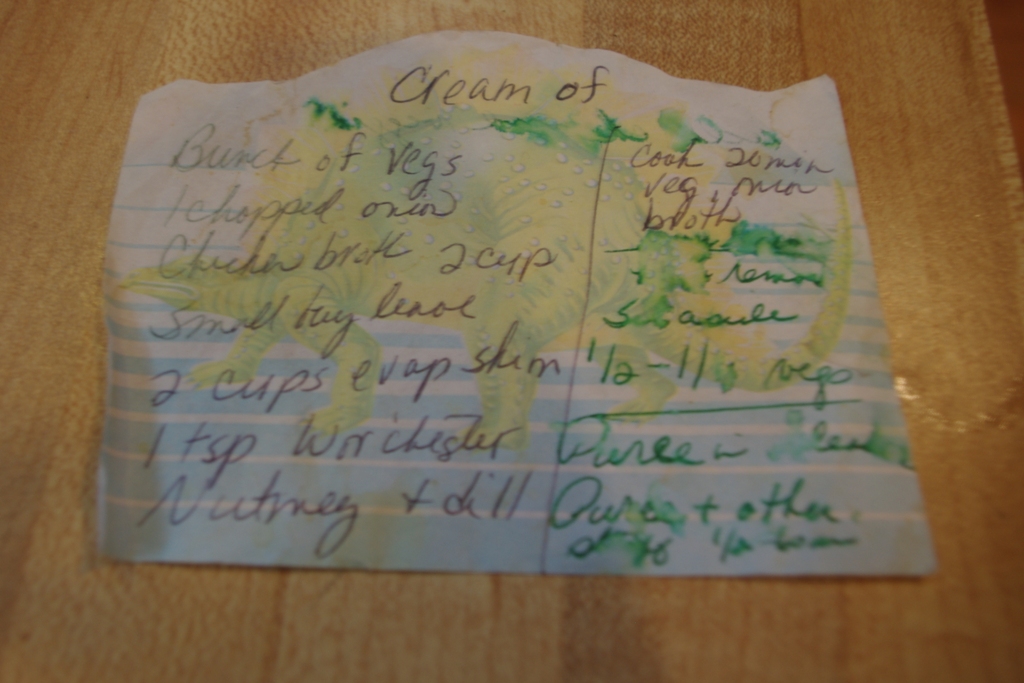 Cream of
Bunch of vegs
1 chopped onion
Chicken broth 2 cup
Small bay leave
2 cups evap skim
1 tsp Worchester
Nutmeg + dill
Cook 20 min
veg, onion
broth
remove
1/2 - 1 vegs
Puree in
Puree + other